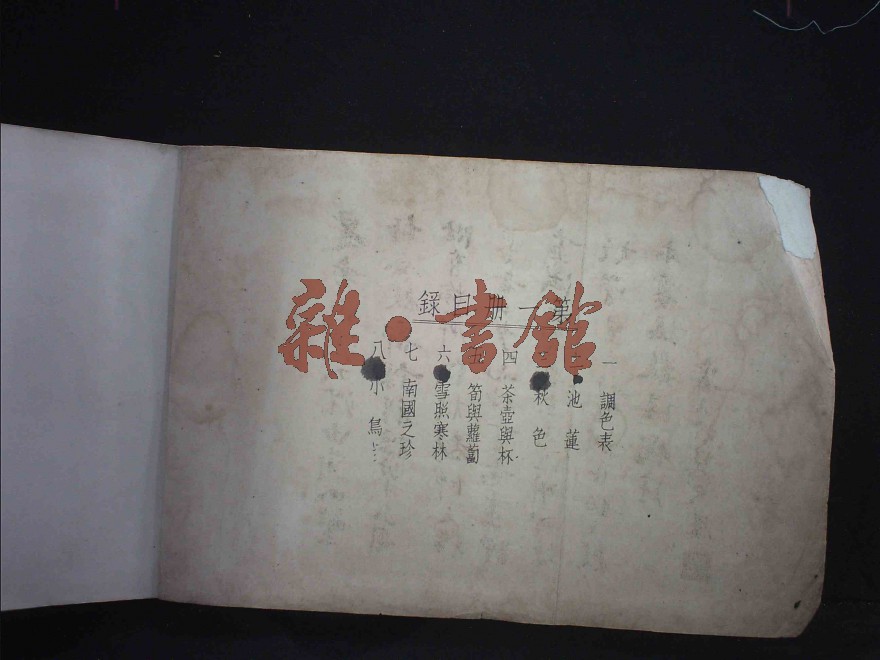 第一册目錄
一 調色表
池蓮
秋色
四 茶壺與杯
筍與蘿蔔
六 雪照寒林
七 南國之珍
八 小鳥
雜·書館